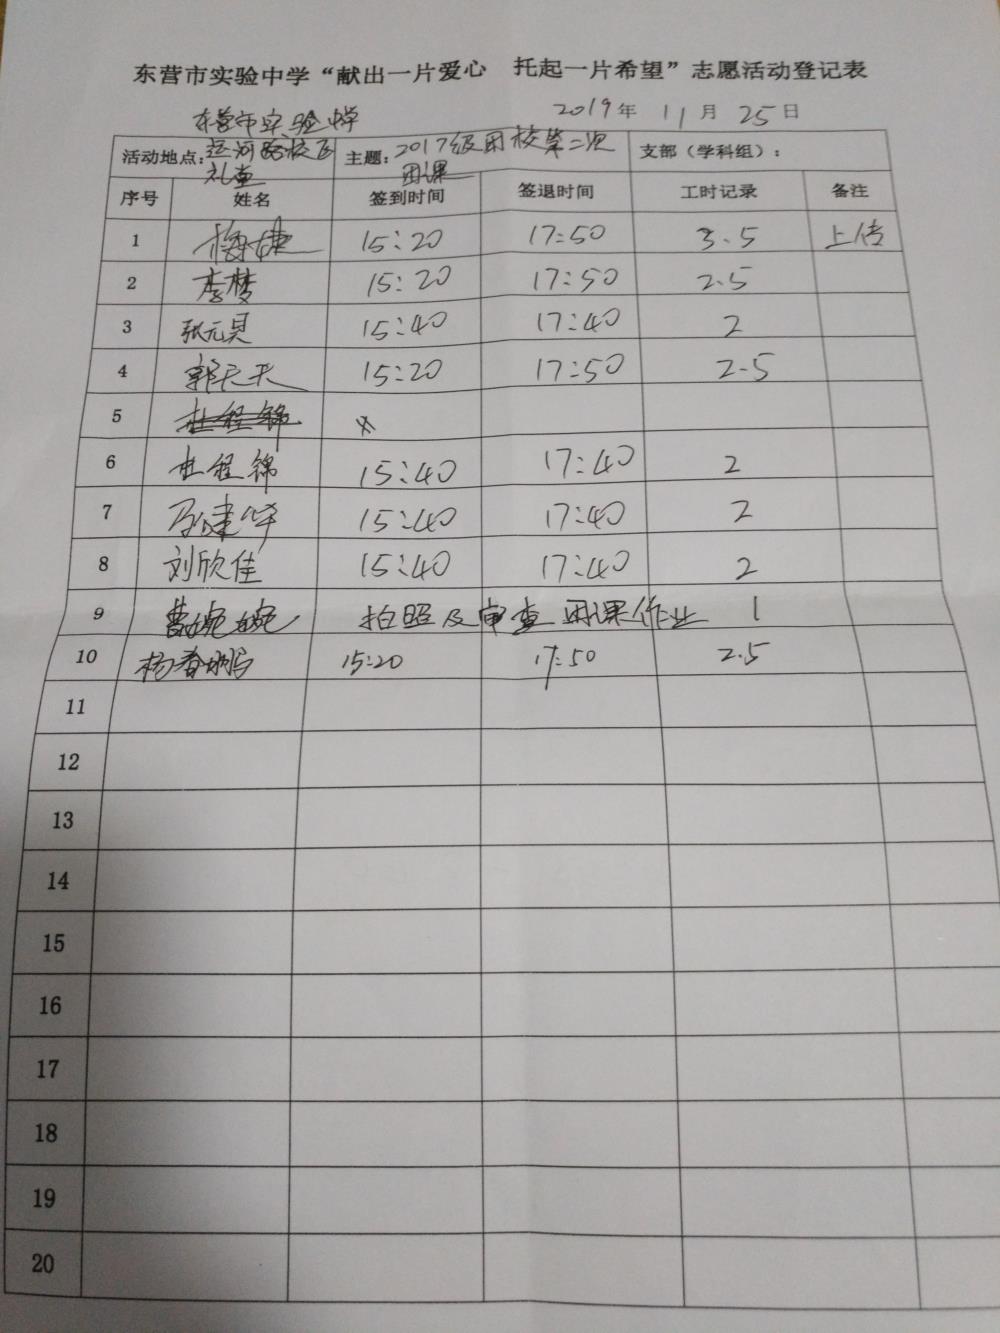 东营市实验中学“献出一片爱心 托起一片希望”志愿活动登记表
2019年 11月 25日
东营市实验中学
活动地点: 运河路校区 主题: 2017级团校第二次 支部（学科组）:
礼堂 团课
序号 姓名 签到时间 签退时间 工时记录 备注
1 梅婕 15:20 17:50 3.5 上传
2 李梦 15:20 17:50 2.5
3 张元昊 15:40 17:40 2
4 郭天天 15:20 17:50 2.5
5 杜程锦 x
6 杜程锦 15:40 17:40 2
7 健华 15:40 17:40 2
8 刘欣佳 15:40 17:40 2
9 曹婉婉 拍照及审查团课作业 1
10 杨春 15:20 17:50 2.5
11
12
13
14
15
16
17
18
19
20